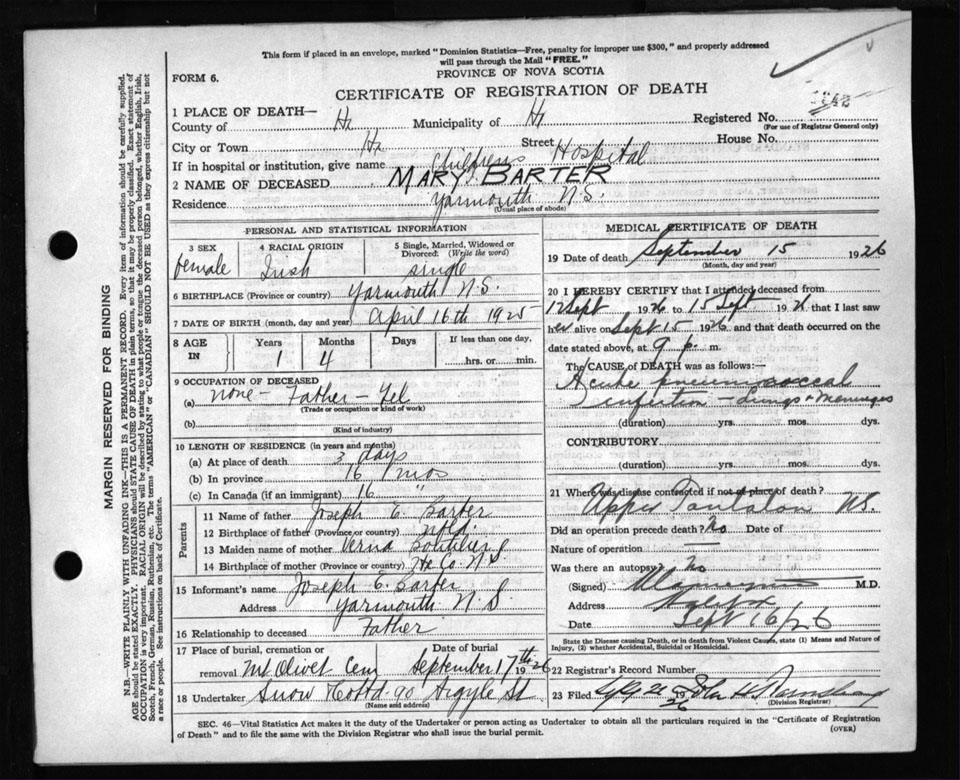 This form if placed in an envelope, marked "Dominion Statistics—Free, penalty for improper use $300," and properly addressed
will pass through the Mail "FREE."
PROVINCE OF NOVA SCOTIA
FORM 6.
CERTIFICATE OF REGISTRATION OF DEATH
1 PLACE OF DEATH—
Registered No.
(For use of Registrar General only)
County of Hx Municipality of Hx
City or Town Hx Street House No.
If in hospital or institution, give name Childrens Hospital
2 NAME OF DECEASED MARY BARTER
Residence Yarmouth N.S.
(Usual place of abode)
PERSONAL AND STATISTICAL INFORMATION
3 SEX 4 RACIAL ORIGIN 5 Single, Married, Widowed or Divorced: (Write the word)
female Irish single
6 BIRTHPLACE (Province or country) Yarmouth N.S.
7 DATE OF BIRTH (month, day and year) April 16th 1925
8 AGE IN Years Months Days If less than one day,
1 4 hrs. or min.
9 OCCUPATION OF DECEASED
(a) none - Father - Tel
(Trade or occupation or kind of work)
(b)
(Kind of industry)
10 LENGTH OF RESIDENCE (in years and months)
(a) At place of death 3 days
(b) In province 16 mos
(c) In Canada (if an immigrant) 16 "
Parents
11 Name of father Joseph E. Barter
12 Birthplace of father (Province or country) Nfld.
13 Maiden name of mother Verna Boutilier
14 Birthplace of mother (Province or country) Hx Co. N.S
15 Informant's name Joseph E. Barter
Address Yarmouth N.S.
16 Relationship to deceased Father
17 Place of burial, cremation or removal Date of burial
Mt Olivet Cem September 17th 1926
18 Undertaker Snow & Co Ltd. 90 Argyle St
(Name and address)
MEDICAL CERTIFICATE OF DEATH
19 Date of death September 15 1926
(Month, day and year)
20 I HEREBY CERTIFY that I attended deceased from
12 Sept 1926 to 15 Sept 1926 that I last saw
her alive on Sept 15 1926 and that death occurred on the
date stated above, at 9 p. m.
The CAUSE of DEATH was as follows:—
Acute pneumococcal
infection - Lungs & Meninges
(duration) yrs. mos. dys.
CONTRIBUTORY
(duration) yrs. mos. dys.
21 Where was disease contracted if not at place of death?
Upper Tantalon NS.
Did an operation precede death? No Date of
Nature of operation —
Was there an autopsy? No
(Signed) M.D.
Address Halifax
Date Sept 16/26
State the Disease causing Death, or in death from Violent Causes, state (1) Means and Nature of
Injury, (2) whether Accidental, Suicidal or Homicidal.
22 Registrar's Record Number
23 Filed 19 26
(Division Registrar)
SEC. 46—Vital Statistics Act makes it the duty of the Undertaker or person acting as Undertaker to obtain all the particulars required in the "Certificate of Registration
of Death" and to file the same with the Division Registrar who shall issue the burial permit.
(OVER)
MARGIN RESERVED FOR BINDING
N.B.—WRITE PLAINLY WITH UNFADING INK—THIS IS A PERMANENT RECORD. Every item of information should be carefully supplied.
AGE should be stated EXACTLY. PHYSICIANS should STATE CAUSE OF DEATH in plain terms, so that it may be properly classified. Exact statement of
OCCUPATION is very important. RACIAL ORIGIN will be described by stating to what people or tongue the deceased person belonged, whether English, Irish,
Scotch, French, German, Russian, Ruthenian, etc. The terms "AMERICAN" or "CANADIAN" SHOULD NOT BE USED as they express citizenship but not
a race or people. See instructions on back of Certificate.